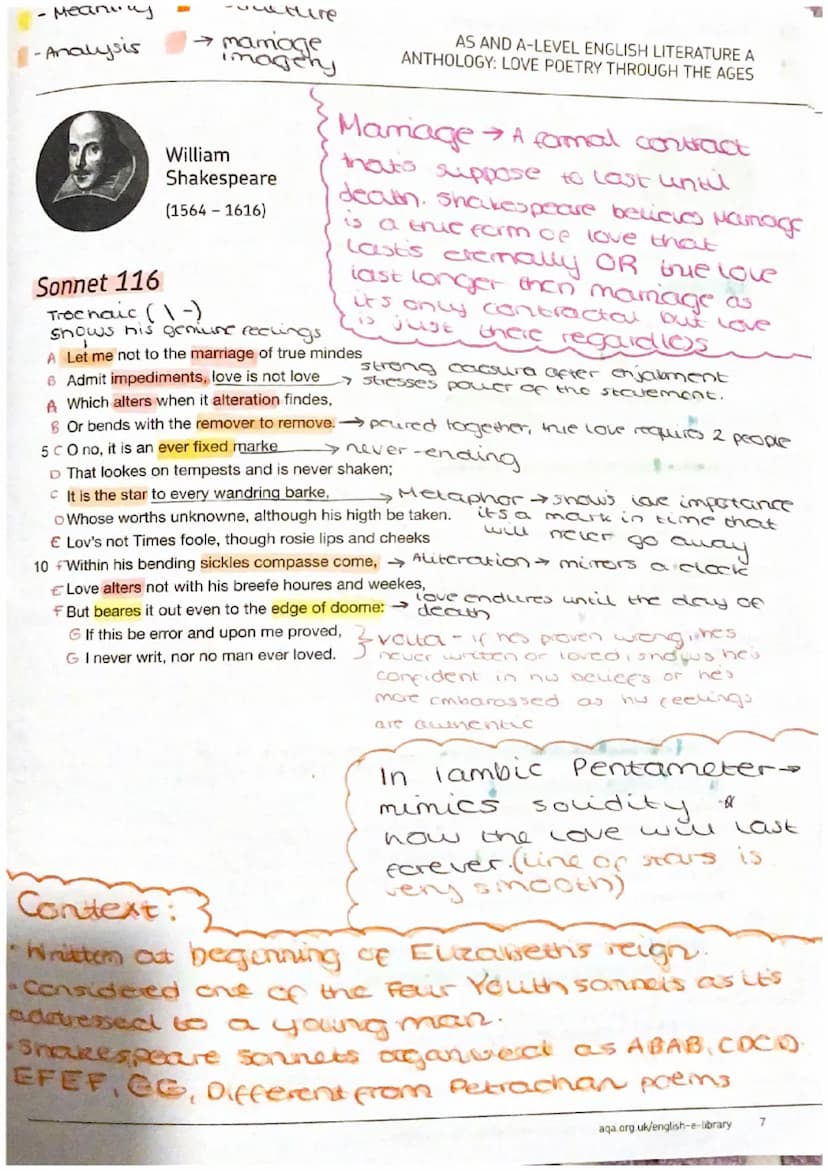 - Meaning - Structure
- Analysis → marriage imagery
AS AND A-LEVEL ENGLISH LITERATURE A
ANTHOLOGY: LOVE POETRY THROUGH THE AGES
William
Shakespeare
(1564 – 1616)
Marriage → A formal contract
thats suppose to last until
death. Shakespeare believes Marriage
is a true form of love that
lasts eternally OR true love
last longer then marriage as
its only contractal but love
is just there regardless
Sonnet 116
Trochaic ( \ -)
shows his geniune feelings
A Let me not to the marriage of true mindes
B Admit impediments, love is not love → strong caesura after enjabment
stresses power of the statement.
A Which alters when it alteration findes,
B Or bends with the remover to remove. → paired together, true love requires 2 people
5 C O no, it is an ever fixed marke → never-ending
D That lookes on tempests and is never shaken;
C It is the star to every wandring barke, → Metaphor → shows love importance
D Whose worths unknowne, although his higth be taken. it's a mark in time that
will never go away
E Lov's not Times foole, though rosie lips and cheeks
10 F Within his bending sickles compasse come, → Aliteration → mirrors a clock
E Love alters not with his breefe houres and weekes,
F But beares it out even to the edge of doome: → love endures until the day of
death
G If this be error and upon me proved,
G I never writ, nor no man ever loved.
volta - if hes proven wrong, hes
never written or loved, shows he's
confident in his beliefs or he's
more embarassed as his feelings
are authentic
In iambic Pentameter →
mimics solidity &
how the love will last
forever. (line of stars is
very smooth)
Context:
• Written at beginning of Elizabeth's reign.
• Considered one of the Fair Youth sonnets as it's
addressed to a young man.
• Shakespeare sonnets organised as ABAB, CDCD
EFEF, GG, Different from Petrachan poems
aqa.org.uk/english-e-library 7